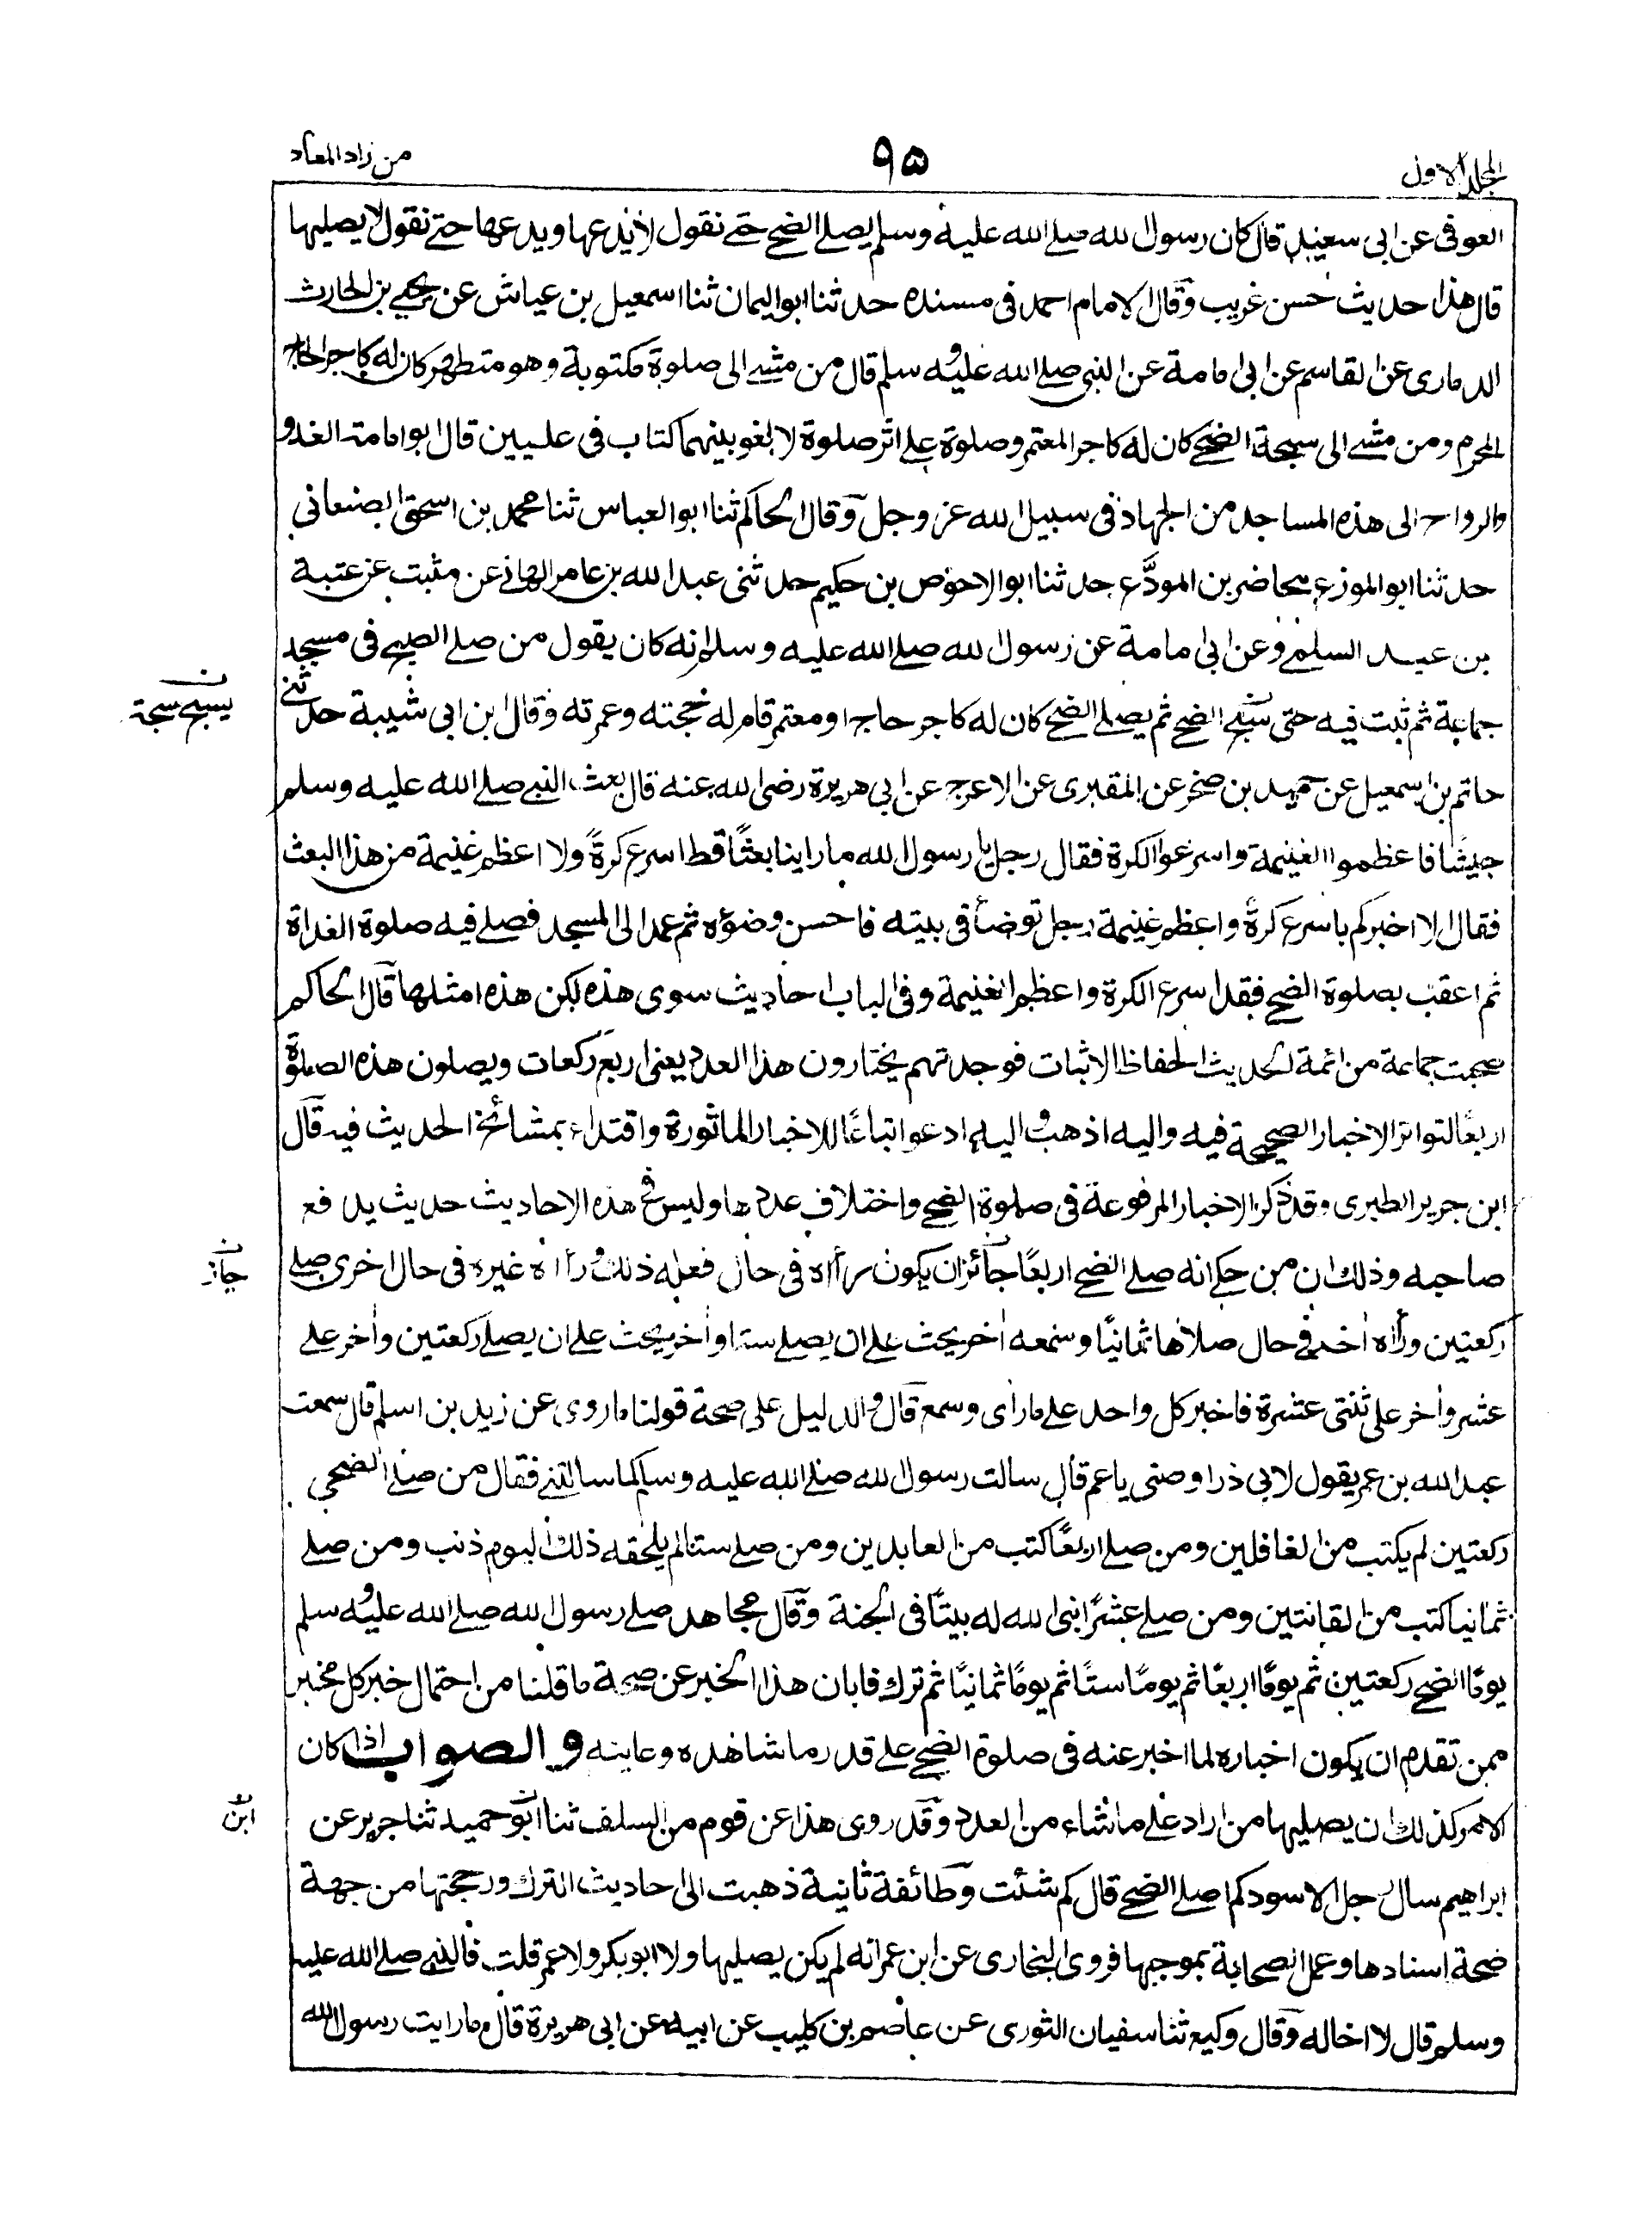 المجلد الاول
٩٥
من زاد المعاد
العوفى عن ابى سعيد قال كان رسول الله صلے الله عليه وسلم يصلے الضحے حتے نقول لا يدعها ويدعها حتے نقول لا يصليها
قال هذا حديث حسن غريب وقال الامام احمد فى مسنده حدثنا ابو اليمان ثنا اسمعيل بن عياش عن يحيے بن الحارث
الدمارى عن القاسم عن ابى امامة عن النبى صلے الله عليه وسلم قال من مشے الى صلوة مكتوبة وهو متطهر كان له كاجر الحاج
المحرم ومن مشے الى سبحة الضحے كان له كاجر المعتمر وصلوة علے اثر صلوة لا لغو بينهما كتاب فى عليين قال ابو امامة الغدو
والرواح الى هذه المساجد من الجهاد فى سبيل الله عز وجل وقال الحاكم ثنا ابو العباس ثنا محمد بن اسحق الصنعانى
حدثنا ابو الموزع محاضر بن المودَّع حدثنا ابو الاحوص بن حكيم حدثنى عبد الله بن عامر الهانے عن مثبت عن عتبة
بن عبد السلمے وعن ابى امامة عن رسول الله صلے الله عليه وسلم انه كان يقول من صلے الصبح فى مسجد
جماعة ثم ثبت فيه حتى الضحے ثم يصلے الضحے كان له كاجر حاج او معتمر قام له حجته وعمرته وقال ابن ابى شيبة حدثنے
يسبح سبحة
حاتم بن اسمعيل عن حميد بن صخر عن المقبرى عن الاعرج عن ابى هريرة رضى الله عنه قال بعث النبے صلے الله عليه وسلم
جيشًا فاعظموا الغنيمة واسرعوا الكرة فقال رجل يا رسول الله ما راينا بعثًا قط اسرع كرةً ولا اعظم غنيمة من هذا البعث
فقال الا اخبركم باسرع كرةً واعظم غنيمة رجل توضأ فى بيته فاحسن وضوءه ثم عمد الى المسجد فصلے فيه صلوة الغداة
ثم اعقب بصلوة الضحے فقد اسرع الكرة واعظم الغنيمة وفى الباب احاديث سوى هذه لكن هذه امثلها قال الحاكم
صحبت جماعة من ائمة الحديث الحفاظ الاثبات فوجدتهم يختارون هذا العدد يعنى اربع ركعات ويصلون هذه الصلوة
اربعًا لتواتر الاخبار الصحيحة فيه واليه اذهب واليه ادعو اتباعًا للاخبار الماثورة واقتداء بمشائخ الحديث فيه قال
ابن جرير الطبرى وقد ذكر الاخبار المرفوعة فى صلوة الضحے واختلاف عددها وليس فى هذه الاحاديث حديث يدافع
صاحبه وذلك ان من حكے انه صلے الضحے اربعًا جائز ان يكون رأاه فى حال فعله ذلك ورأاه غيره فى حال اخرى صلے
جاز
ركعتين ورأاه اخر فى حال صلاها ثمانيًا وسمعه اخر يحث علے ان يصلے ستا واخر يحث علے ان يصلے ركعتين واخر على
عشر واخر على ثنتى عشرة فاخبر كل واحد علے ما رأى وسمع قال والدليل على صحة قولنا ما روى عن زيد بن اسلم قال سمعت
عبد الله بن عمر يقول لابى ذر اوصنى يا عم قال سالت رسول الله صلے الله عليه وسلم كما سالتنے فقال من صلے الضحى
ركعتين لم يكتب من الغافلين ومن صلے اربعًا كتب من العابدين ومن صلے ستا لم يلحقه ذلك اليوم ذنب ومن صلے
ثمانيا كتب من القانتين ومن صلے عشرًا بنى الله له بيتًا فى الجنة وقال مجاهد صلے رسول الله صلے الله عليه وسلم
يومًا الضحے ركعتين ثم يومًا اربعًا ثم يومًا ستًا ثم يومًا ثمانيًا ثم ترك فابان هذا الخبر عن صحة ما قلنا من احتمال خبر كل مخبر
ممن تقدم ان يكون اخباره لما اخبر عنه فى صلوة الضحے علے قدر ما شاهده وعاينه والصواب اذا كان
الامر كذلك ان يصليها من اراد علے ما شاء من العدد وقد روى هذا عن قوم من السلف ثنا ابو حميد ثنا جرير عن
ابن
ابراهيم سال رجل الاسود كم اصلے الضحے قال كم شئت وطائفة ثانية ذهبت الى احاديث الترك ورجحتها من جهة
صحة اسنادها وعمل الصحابة بموجبها فروى البخارى عن ابن عمر انه لم يكن يصليها ولا ابو بكر ولا عمر قلت فالنبے صلے الله عليه
وسلم قال لا اخاله وقال وكيع ثنا سفيان الثورى عن عاصم بن كليب عن ابيه عن ابى هريرة قال ما رايت رسول الله